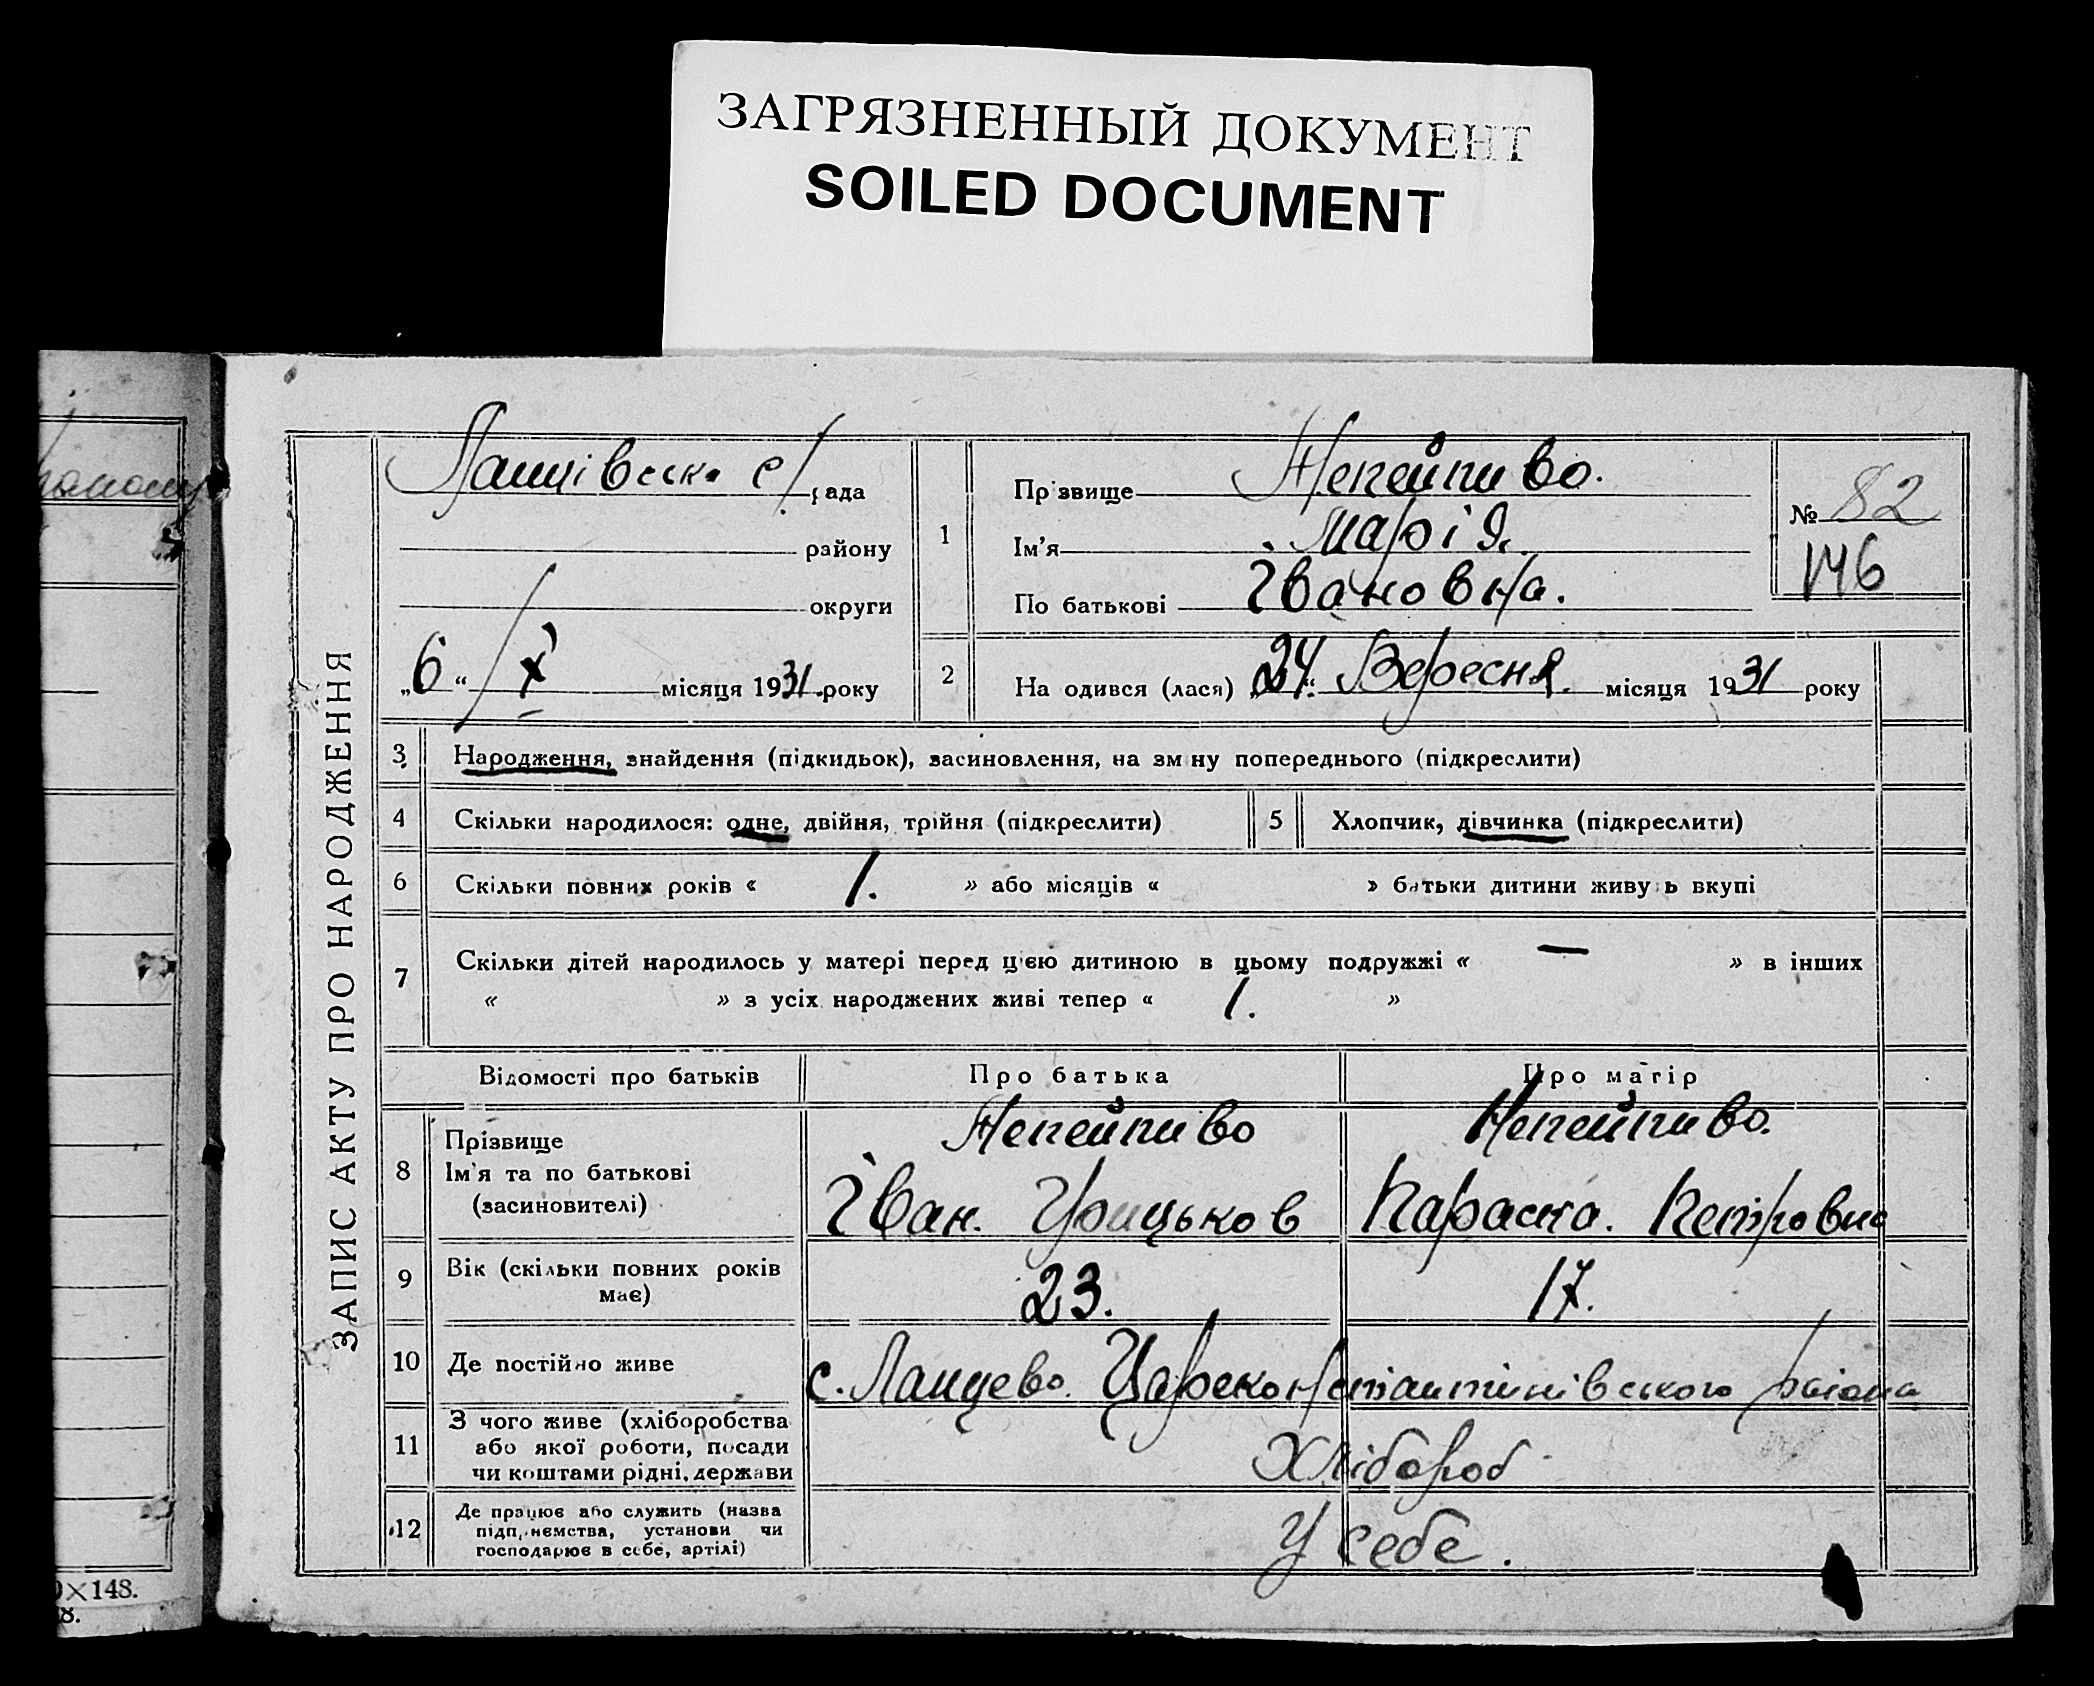 ЗАГРЯЗНЕННЫЙ ДОКУМЕНТ
SOILED DOCUMENT
ЗАПИС АКТУ ПРО НАРОДЖЕННЯ
с/рада
району
округи
„6“ /X місяця 1931. року
1
Прізвище Непейпиво.
Ім'я Марія.
По батькові Івановна.
№ 82
146
2
На одився (лася) „24“ Вересня. місяця 1931 року
3
Народження, знайдення (підкидьок), засиновлення, на зм ну попереднього (підкреслити)
4
Скільки народилося: одне, двійня, трійня (підкреслити)
5
Хлопчик, дівчинка (підкреслити)
6
Скільки повних років « 1. » або місяців « » батьки дитини живу ь вкупі
7
Скільки дітей народилось у матері перед ц'єю дитиною в цьому подружжі « — » в інших
« » з усіх народжених живі тепер « 1. »
Відомості про батьків
Про батька
Про матір
8
Прізвище
Ім'я та по батькові
(засиновителі)
Непейпиво
Іван. Грицьков
Непейпиво.
Параска. Петровна
9
Вік (скільки повних років
має)
23.
17.
10
Де постійно живе
с. Ланцево. Цареконстантинівського раіона
11
З чого живе (хліборобства
або якої роботи, посади
чи коштами рідні, держави
Хлібороб
12
Де працює або служить (назва
підп, иємства, установи чи
господарює в себе, артілі)
У себе.
×148.
8.